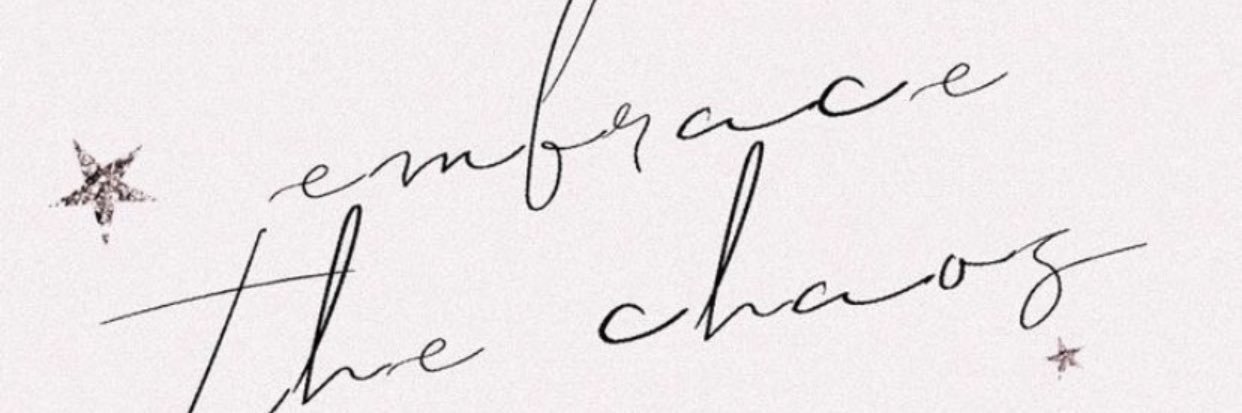 embrace
the chaos